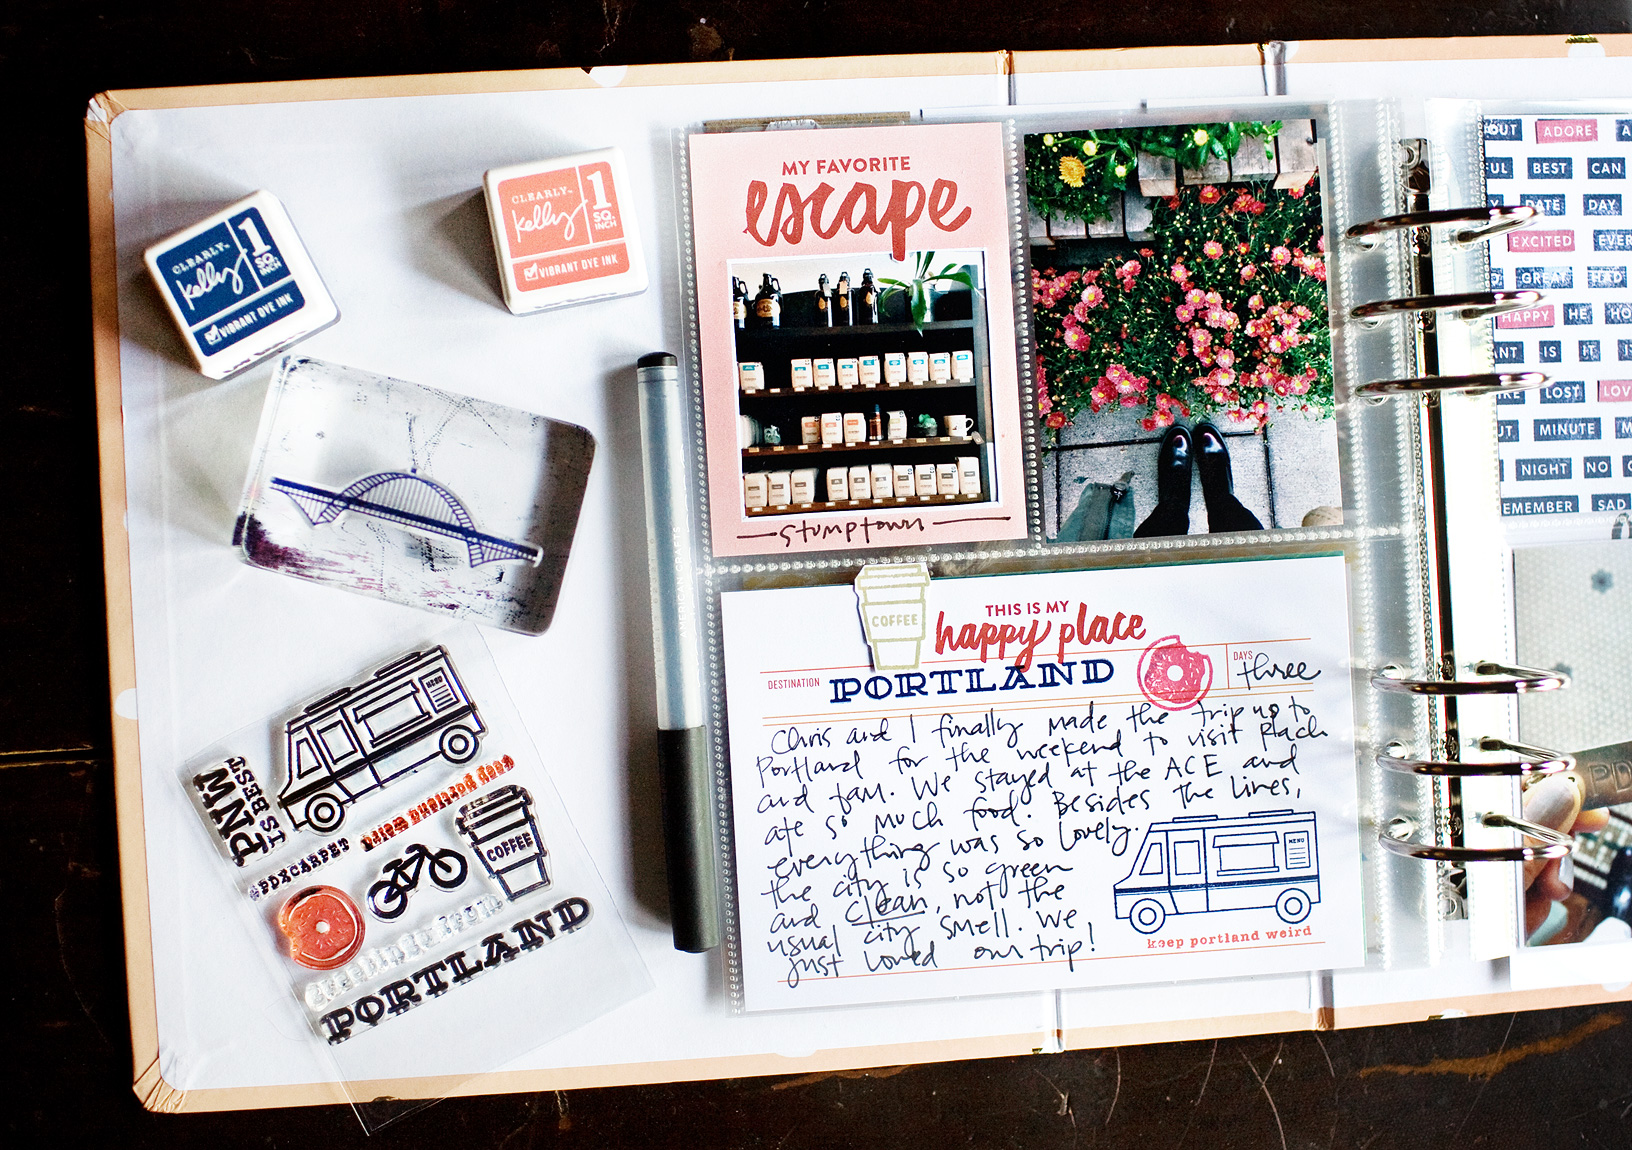 CLEARLY
Kelly
1
SQ.
INCH
VIBRANT DYE INK
CLEARLY
Kelly
1
SQ.
INCH
VIBRANT DYE INK
MY FAVORITE
escape
stumptown
THIS IS MY
happy place
COFFEE
DESTINATION
PORTLAND
DAYS
three
Chris and I finally made the trip up to
Portland for the weekend to visit Rach
and fam. We stayed at the ACE and
ate so much food. Besides the lines,
everything was so lovely.
the city is so green
and clean, not the
usual city smell. We
just loved our trip!
MENU
keep portland weird
MENU
PNW
IS BEST
#PDXCARPET
keep portland weird
COFFEE
PORTLAND
AMERICAN CRAFTS
OUT ADORE
BEST CAN
DATE DAY
EXCITED EVER
GREAT HAD
HAPPY HE
IS IT
LOST LOV
MINUTE
NIGHT NO
EMEMBER SAD